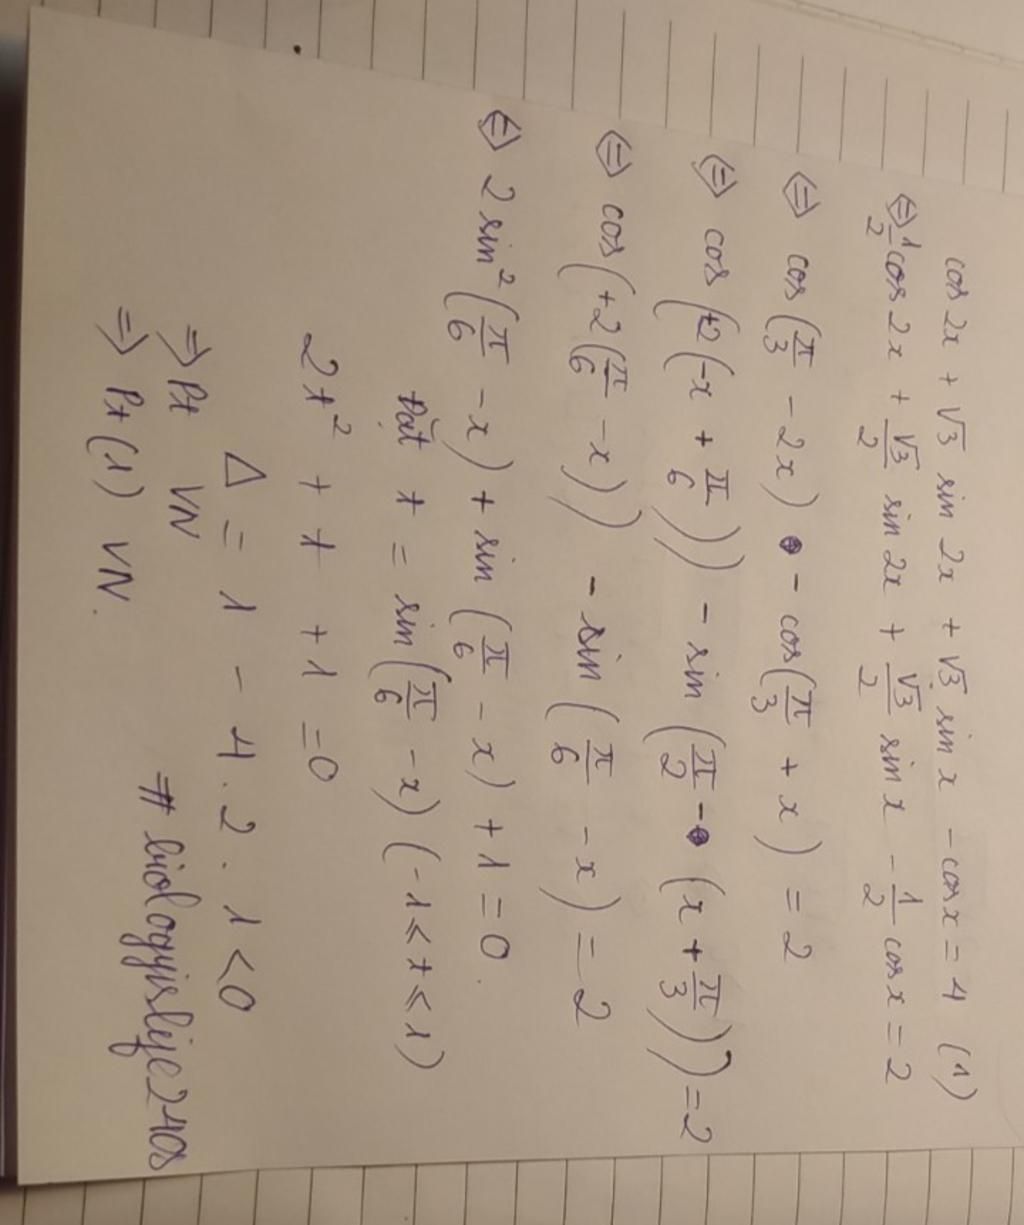 cos 2x + √3 sin 2x + √3 sin x - cos x = 4 (1)
⇔ 1/2 cos 2x + √3/2 sin 2x + √3/2 sin x - 1/2 cos x = 2
⇔ cos(π/3 - 2x) - cos(π/3 + x) = 2
⇔ cos(+2(-x + π/6)) - sin(π/2 - (x + π/3)) = 2
⇔ cos(+2(π/6 - x)) - sin(π/6 - x) = 2
⇔ 2 sin²(π/6 - x) + sin(π/6 - x) + 1 = 0.
Đặt t = sin(π/6 - x) (-1 ≤ t ≤ 1)
2t² + t + 1 = 0
Δ = 1 - 4 . 2 . 1 < 0
⇒ Pt VN
⇒ Pt (1) VN.
# biologyislife2408